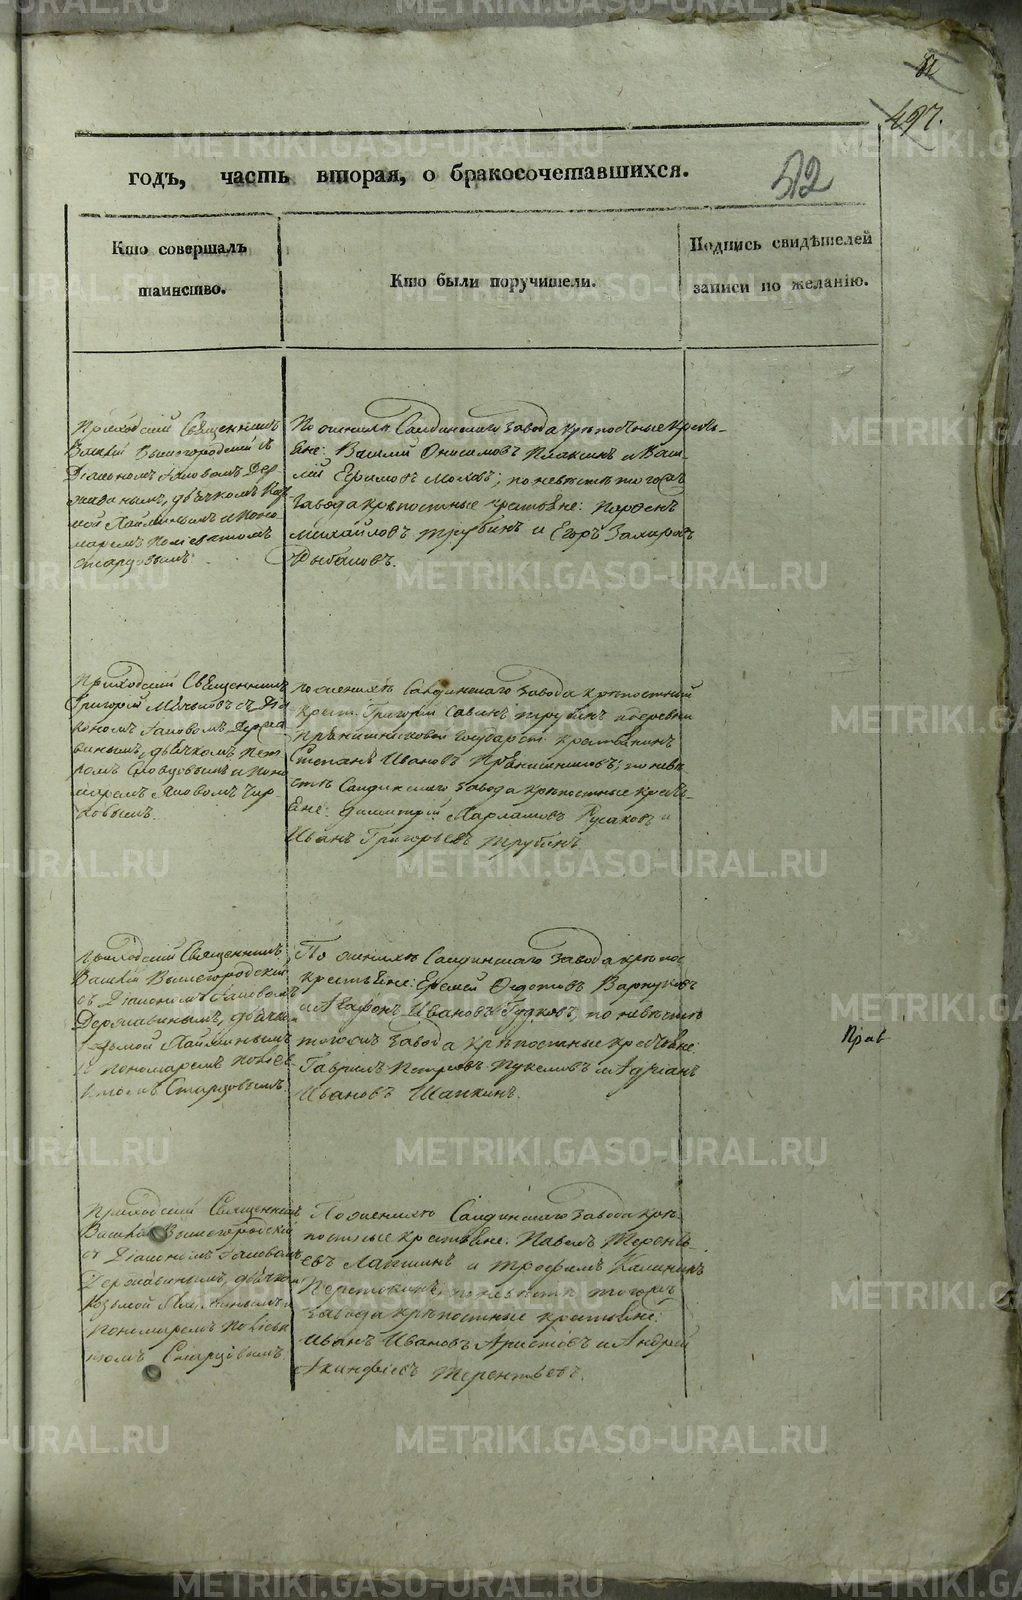 497.
512
годъ, часть вторая, о бракосочетавшихся.
Кто совершалъ
таинство.
Кто были поручители.
Подпись свидѣтелей
записи по желанію.
Приходскій Священникъ
Василій Вышегородскій съ
Діакономъ Іаковомъ Дер-
жавинымъ, дьячкомъ Коз-
мой и Поно-
маремъ
Старцовымъ.
По женихѣ Салдинскаго Завода крѣпостные кресть-
яне: Василій Онисимовъ и Васи-
лій Ефимовъ; по невѣстѣ тогожъ
Завода крѣпостные крестьяне: Парфенъ
Михайловъ Трубинъ и Егоръ Захаровъ
Рыбаковъ.
Приходскій Священникъ
Григорій съ Діа-
кономъ Іаковомъ Держа-
винымъ, дьячкомъ Пет-
ромъ Словцовымъ и Поно-
маремъ Яковомъ Чир-
ковымъ.
по женихѣ Салдинскаго Завода крѣпостный
крест. Григорій Савинъ Трубинъ и деревни
Прянишниковой Государст. крестьянинъ
Степанъ Ивановъ Прянишниковъ; по невѣ-
стѣ Салдинскаго Завода крѣпостные кресть-
яне: Димитрій Харламовъ Русаковъ и
Иванъ Григорьевъ Трубинъ
Приходскій Священникъ
Василій Вышегородскій
съ Діакономъ Іаковомъ
Державинымъ, дьячко
Козьмой
и пономаремъ
Старцовымъ.
По женихѣ Салдинскаго Завода крѣпос
крестьяне: Еремей Федотовъ
и Агафонъ Ивановъ Гудковъ, по невѣстѣ
тогожъ Завода крѣпостные крестьяне:
Гаврилъ Петровъ и Адріанъ
Ивановъ Шапкинъ.
Прав
Приходскій Священникъ
Василій Вышегородскій
съ Діакономъ Іаковомъ
Державинымъ, дьячко
Козьмой и
Пономаремъ
Старцовымъ
По женихѣ Салдинскаго Завода крѣ-
постные крестьяне: Павелъ Терень-
евъ Лапшинъ и Трофимъ Калининъ
по невѣстѣ тогожъ
Завода крѣпостные крестьяне:
Иванъ Ивановъ Аристовъ и Андрей
Акинфіевъ Терентьевъ.
METRIKI.GASO-URAL.RU